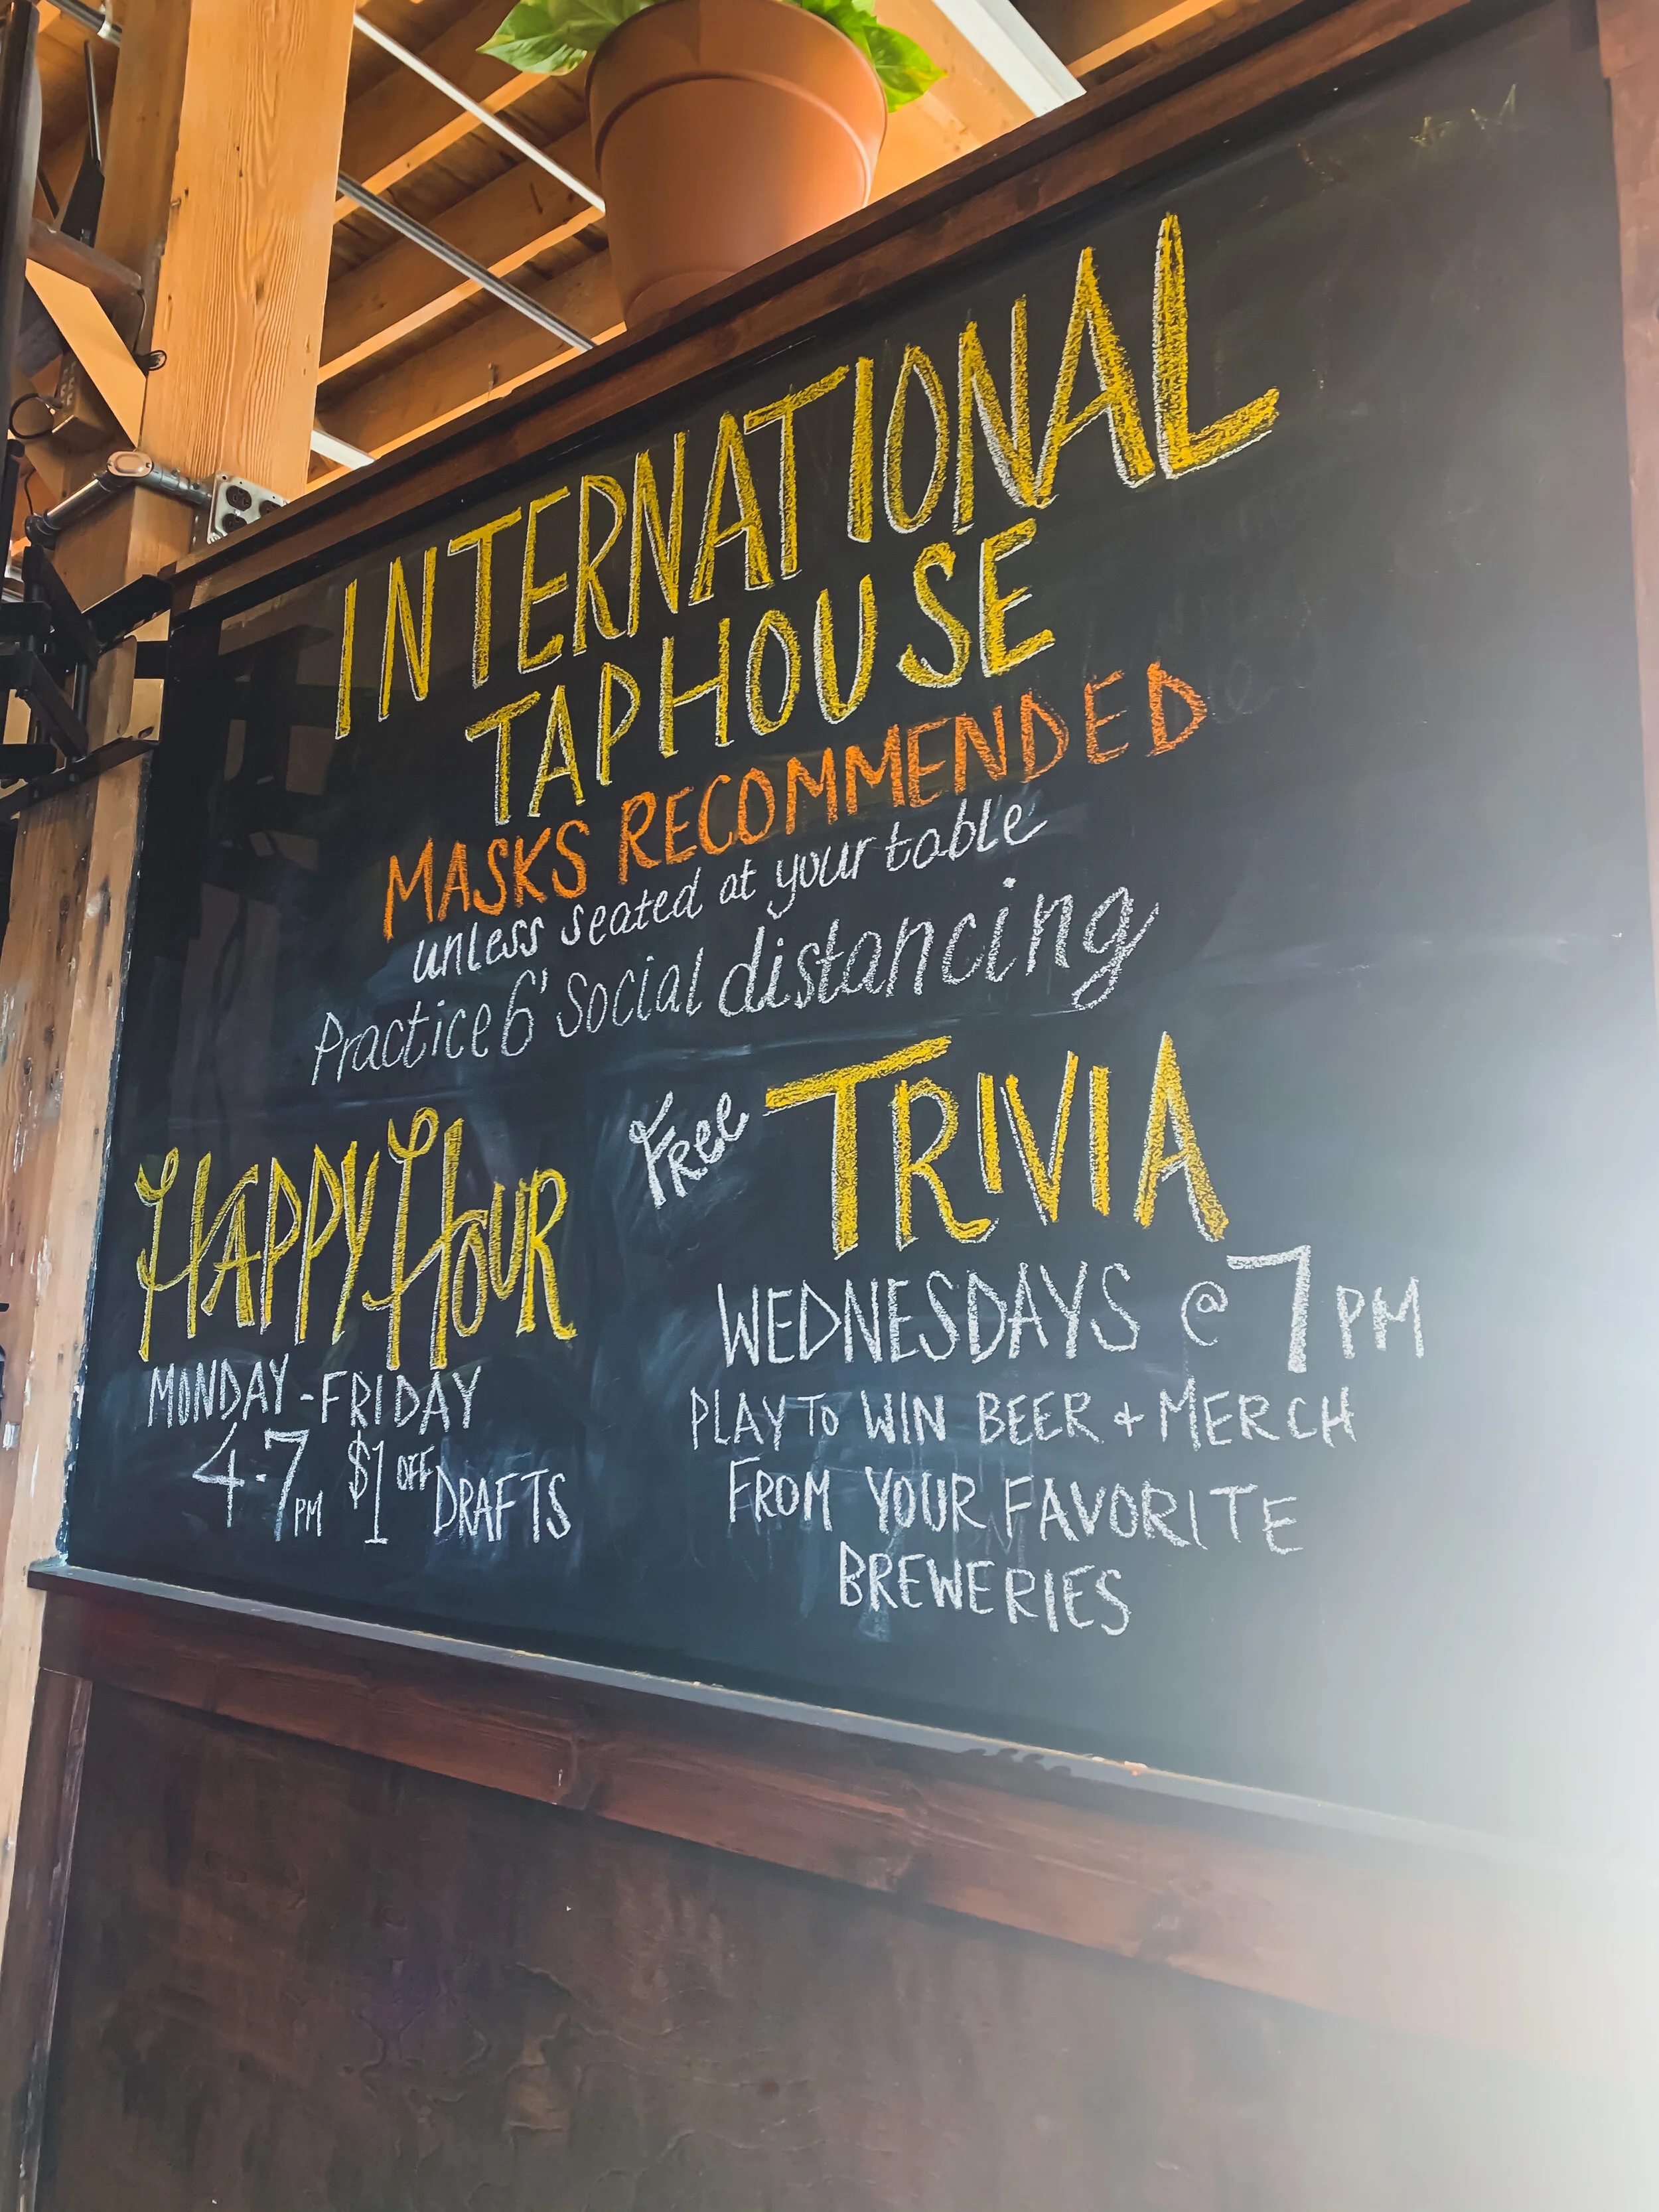 INTERNATIONAL
TAPHOUSE
MASKS RECOMMENDED
unless seated at your table
Practice 6' social distancing
HAPPY HOUR
MONDAY-FRIDAY
4-7PM $1 OFF DRAFTS
Free TRIVIA
WEDNESDAYS @ 7PM
PLAY TO WIN BEER + MERCH
FROM YOUR FAVORITE
BREWERIES